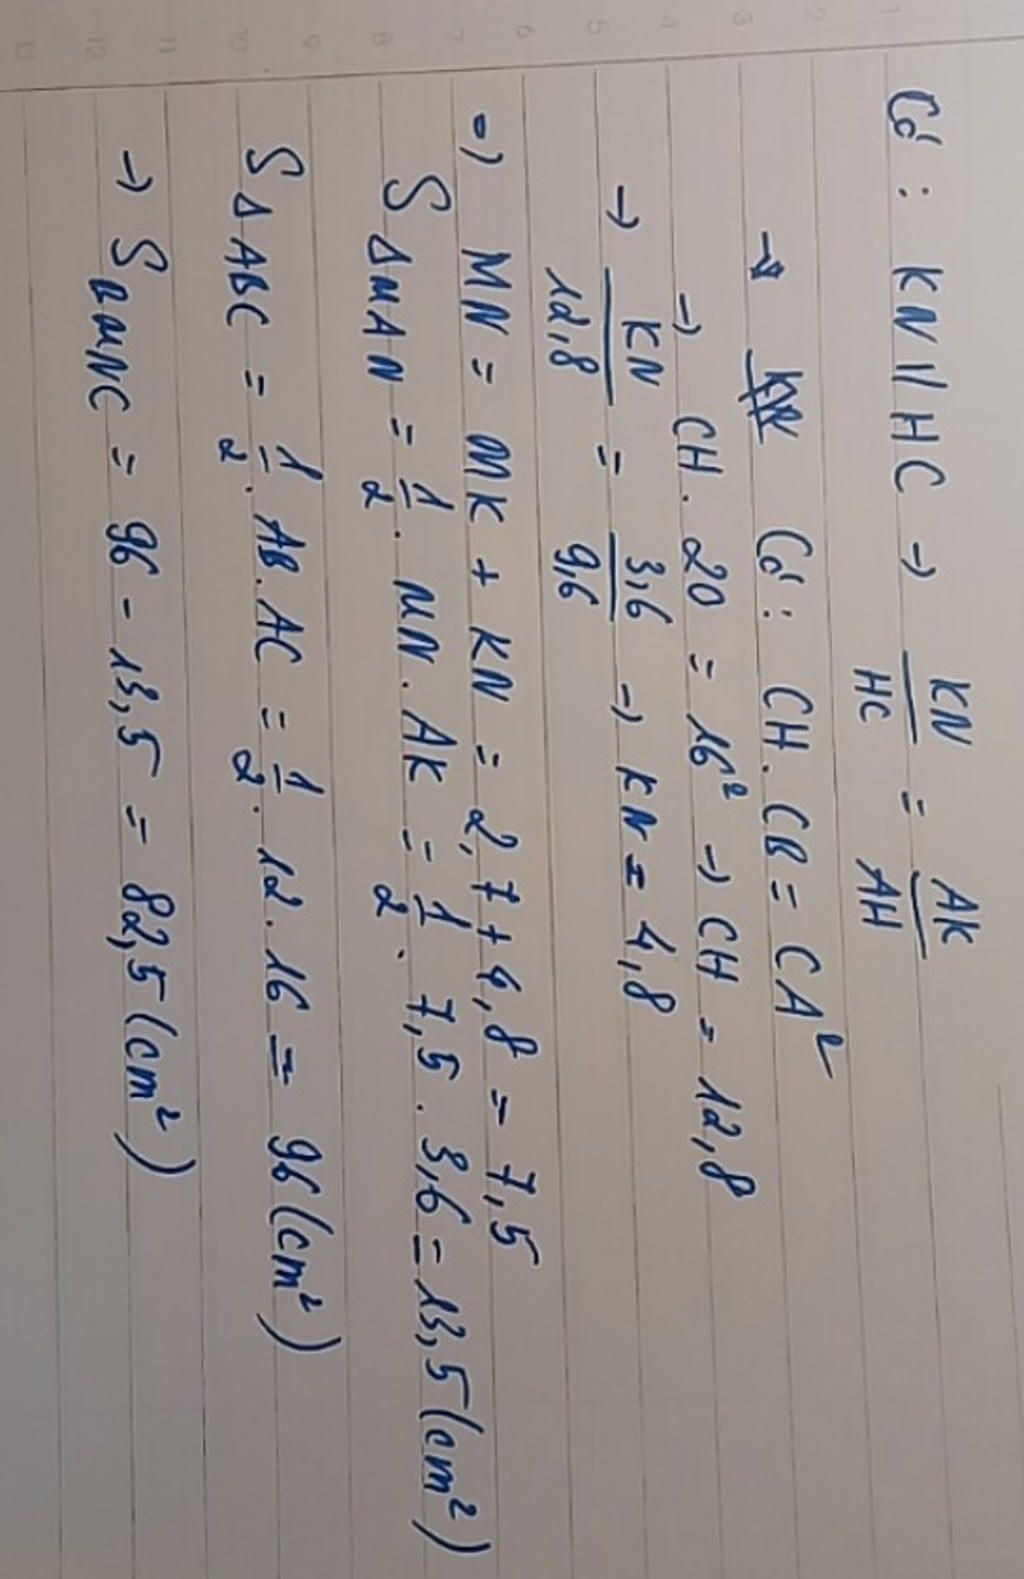 Có: KN // HC → KN/HC = AK/AH
→ Có: CH.CB = CA²
→ CH.20 = 16² → CH = 12,8
→ KN/12,8 = 3,6/9,6 → KN = 4,8
=) MN = MK + KN = 2,7 + 4,8 = 7,5
SΔMAN = 1/2 . MN.AK = 1/2 . 7,5 . 3,6 = 13,5 (cm²)
SΔABC = 1/2 . AB.AC = 1/2 . 12.16 = 96 (cm²)
→ SBMNC = 96 - 13,5 = 82,5 (cm²)
1 2 3 4 5 6 7 8 9 10 11 12 13